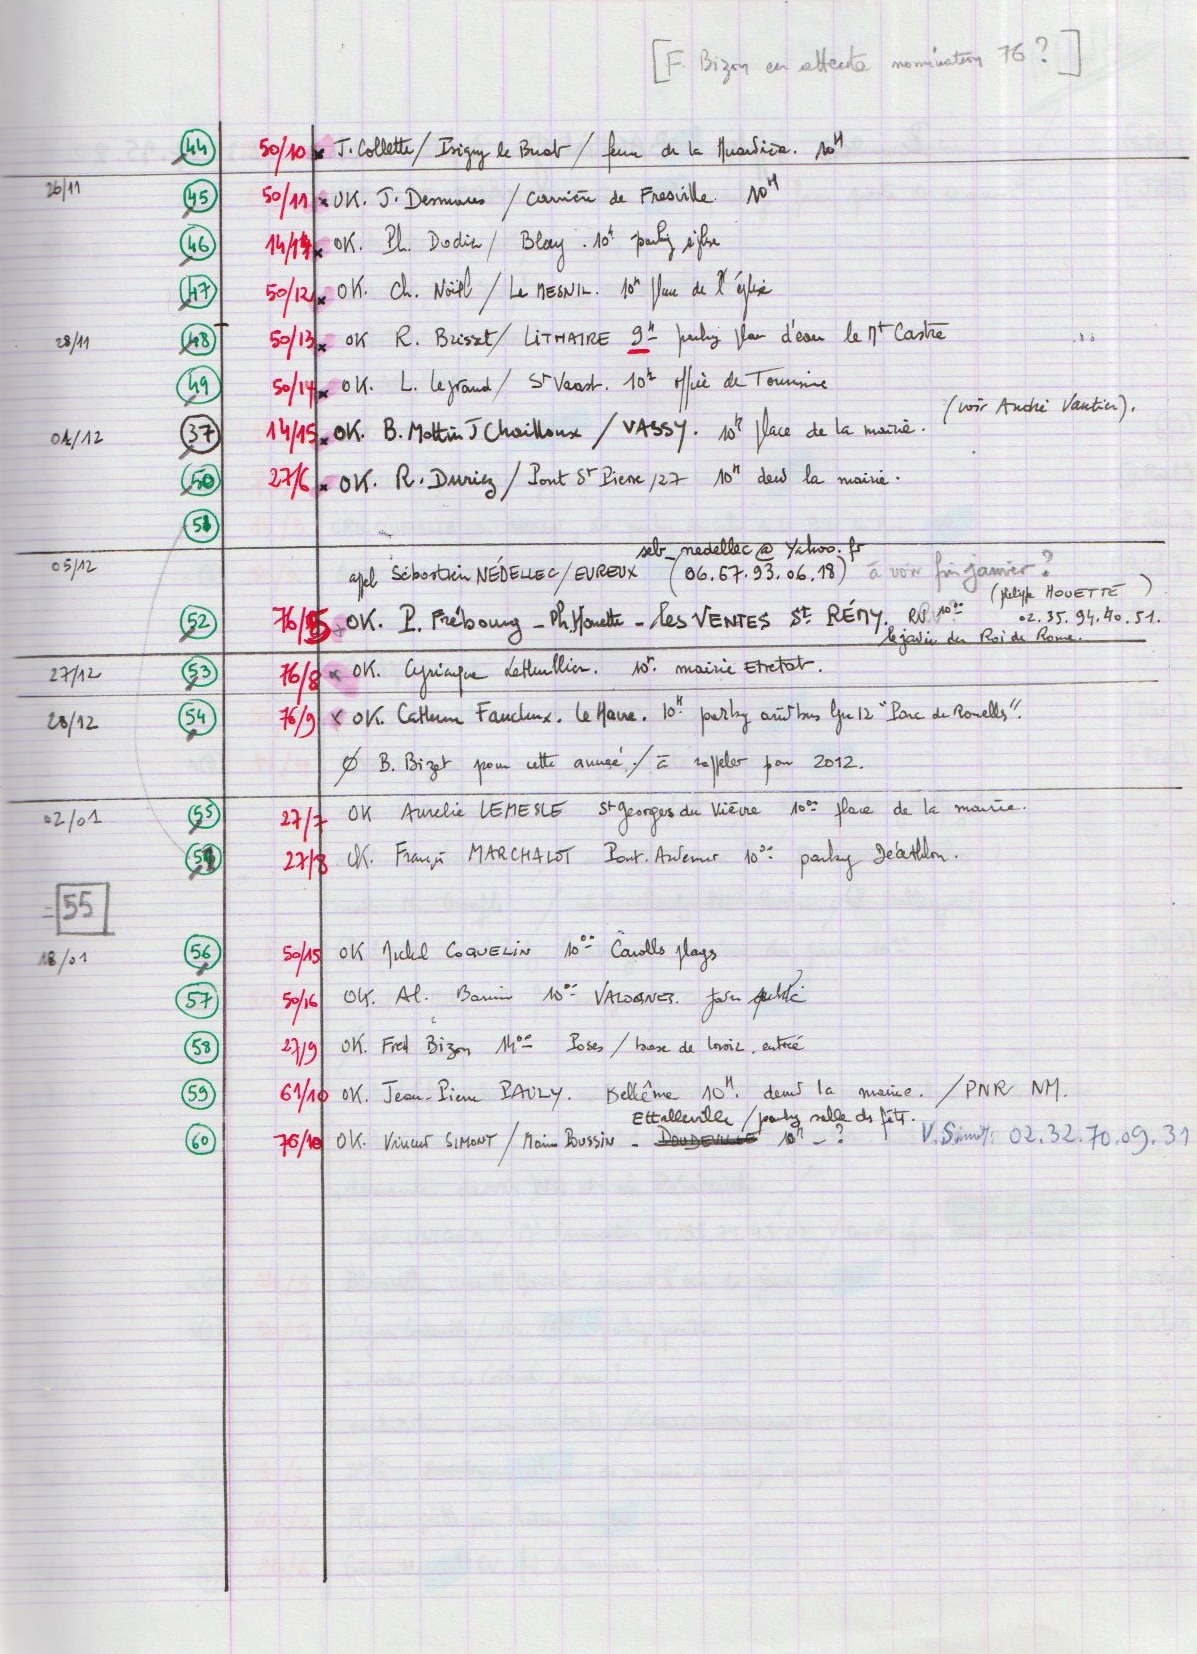 [F. Bizon en attente nomination 76 ?]
44 50/10 J. Collette / Isigny le Buat / ferme de la 10H
26/11 45 50/11 OK. J. Desmares / carrière de Fresville. 10H
46 14/14 OK. Ph. Dodin / Blay. 10H parking église
47 50/12 OK. Ch. Noël / Le MESNIL. 10H place de l'église
28/11 48 50/13 OK R. / LITHAIRE 9H parking plan d'eau le Mt Castre
49 50/14 OK. L. Legrand / St Vaast. 10H office de Tourisme
(voir André Vautier).
01/12 37 14/15 OK. B. J Chailloux / VASSY. 10H place de la mairie.
50 27/6 OK. R. Duriez / Pont St Pierre /27 10H devt la mairie.
51
seb_nedellec@Yahoo.fr
05/12 apel Sébastien NÉDELLEC/EVREUX (06.67.93.06.18) à voir fin janvier ?
(philippe HOUETTE)
52 76/5 OK. P. Frébourg - Ph. Houette - les VENTES St RÉMY. RV. 10°° ? 02.35.94.40.51.
le jardin du Roi de Rome.
27/12 53 76/8 OK. Cyriaque Lethuillier. 10H. mairie Etretat.
28/12 54 76/9 OK. Catherine Faucheux. Le Havre. 10H parking bus 12 "Parc de Rouelles".
Ø B. Bizet pour cette année. / à rappeler pour 2012.
02/01 55 27/7 OK Aurélie LEMESLE St Georges du Vièvre 10°° place de la mairie.
51 27/8 OK. François MARCHALOT Pont. Audemer 10°° parking Décathlon.
= 55
18/01 56 50/15 OK Michel COQUELIN 10°° Carolles plage
57 50/16 OK. Al. 10°° VALOGNES. public
58 27/9 OK. Fred Bizon 14°° Poses / base de loisir. entrée
59 61/10 OK. Jean-Pierre PAULY. Bellême 10H. devt la mairie. / PNR NM.
Ettalleville / parking salle des fêtes.
60 76/10 OK. Vincent SIMONT / BUSSIN - DOUDEVILLE 10H - ? V. Simont: 02.32.70.09.31